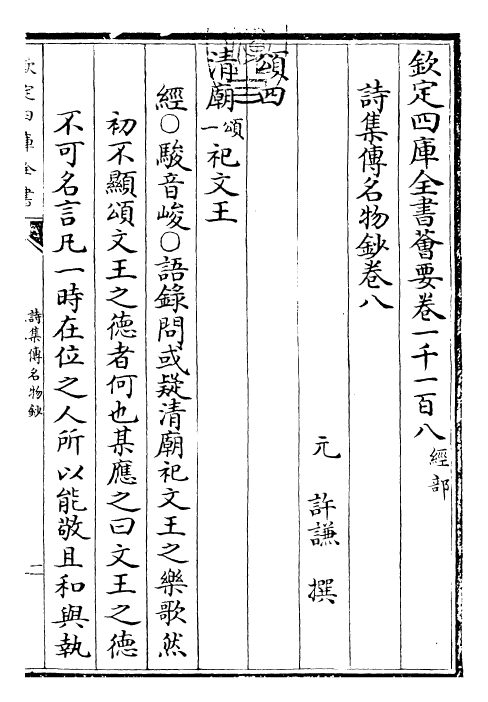 欽定四庫全書薈要卷一千一百八經部
詩集傳名物鈔卷八
元 許謙 撰
頌四
清廟一頌祀文王
經○駿音峻○語錄問或疑清廟祀文王之樂歌然
初不顯頌文王之德者何也某應之曰文王之德
不可名言凡一時在位之人所以能敬且和與執
欽定四庫全書
詩集傳名物鈔